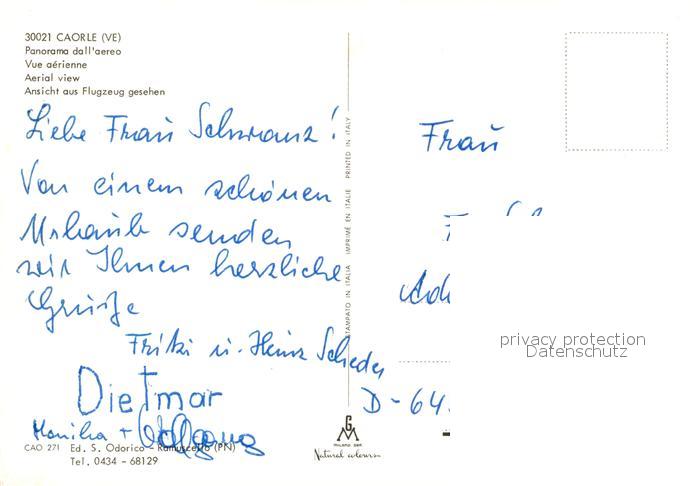 30021 CAORLE (VE)
Panorama dall'aereo
Vue aérienne
Aerial view
Ansicht aus Flugzeug gesehen
Liebe Frau Schwanz!
Von einem schönen
Urlaub senden
wir Ihnen herzliche
Grüße
Fritzi u. Heinz Scheder
Dietmar
Monika + Wolfgang
CAO 271 Ed. S. Odorico - Ramuscello (PN)
Tel. 0434 - 68129
STAMPATO IN ITALIA IMPRIMÉ EN ITALIE PRINTED IN ITALY
MILANO
Natural colours
Frau
D-64
privacy protection
Datenschutz